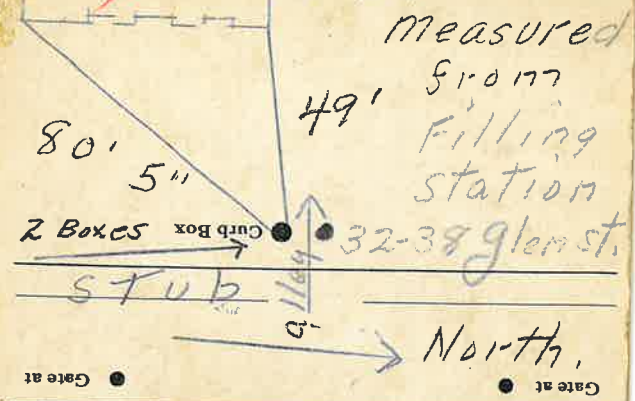 measured
from
49'
Filling
80'
5"
station
2 Boxes
Curb Box
32-38 Glen st.
Stub
North.
Gate at
Gate at